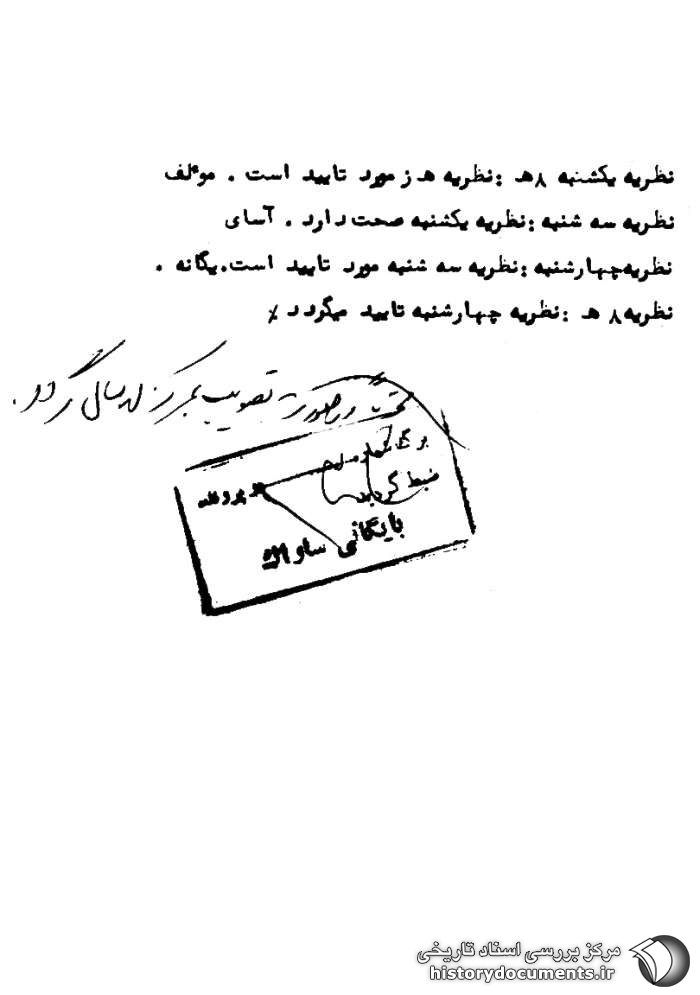 نظریه یکشنبه ۸ هـ : نظریه هـ ز مورد تایید است . موٴلف
نظریه سه شنبه : نظریه یکشنبه صحت دارد . آسای
نظریه چهارشنبه : نظریه سه شنبه مورد تایید است . یگانه .
نظریه ۸ هـ : نظریه چهارشنبه تایید میگردد ٪
در صورت تصویب بمرکز ارسال گردد .
برگ شماره
ضبط گردید
بایگانی ساواک
مرکز بررسی اسناد تاریخی
historydocuments.ir